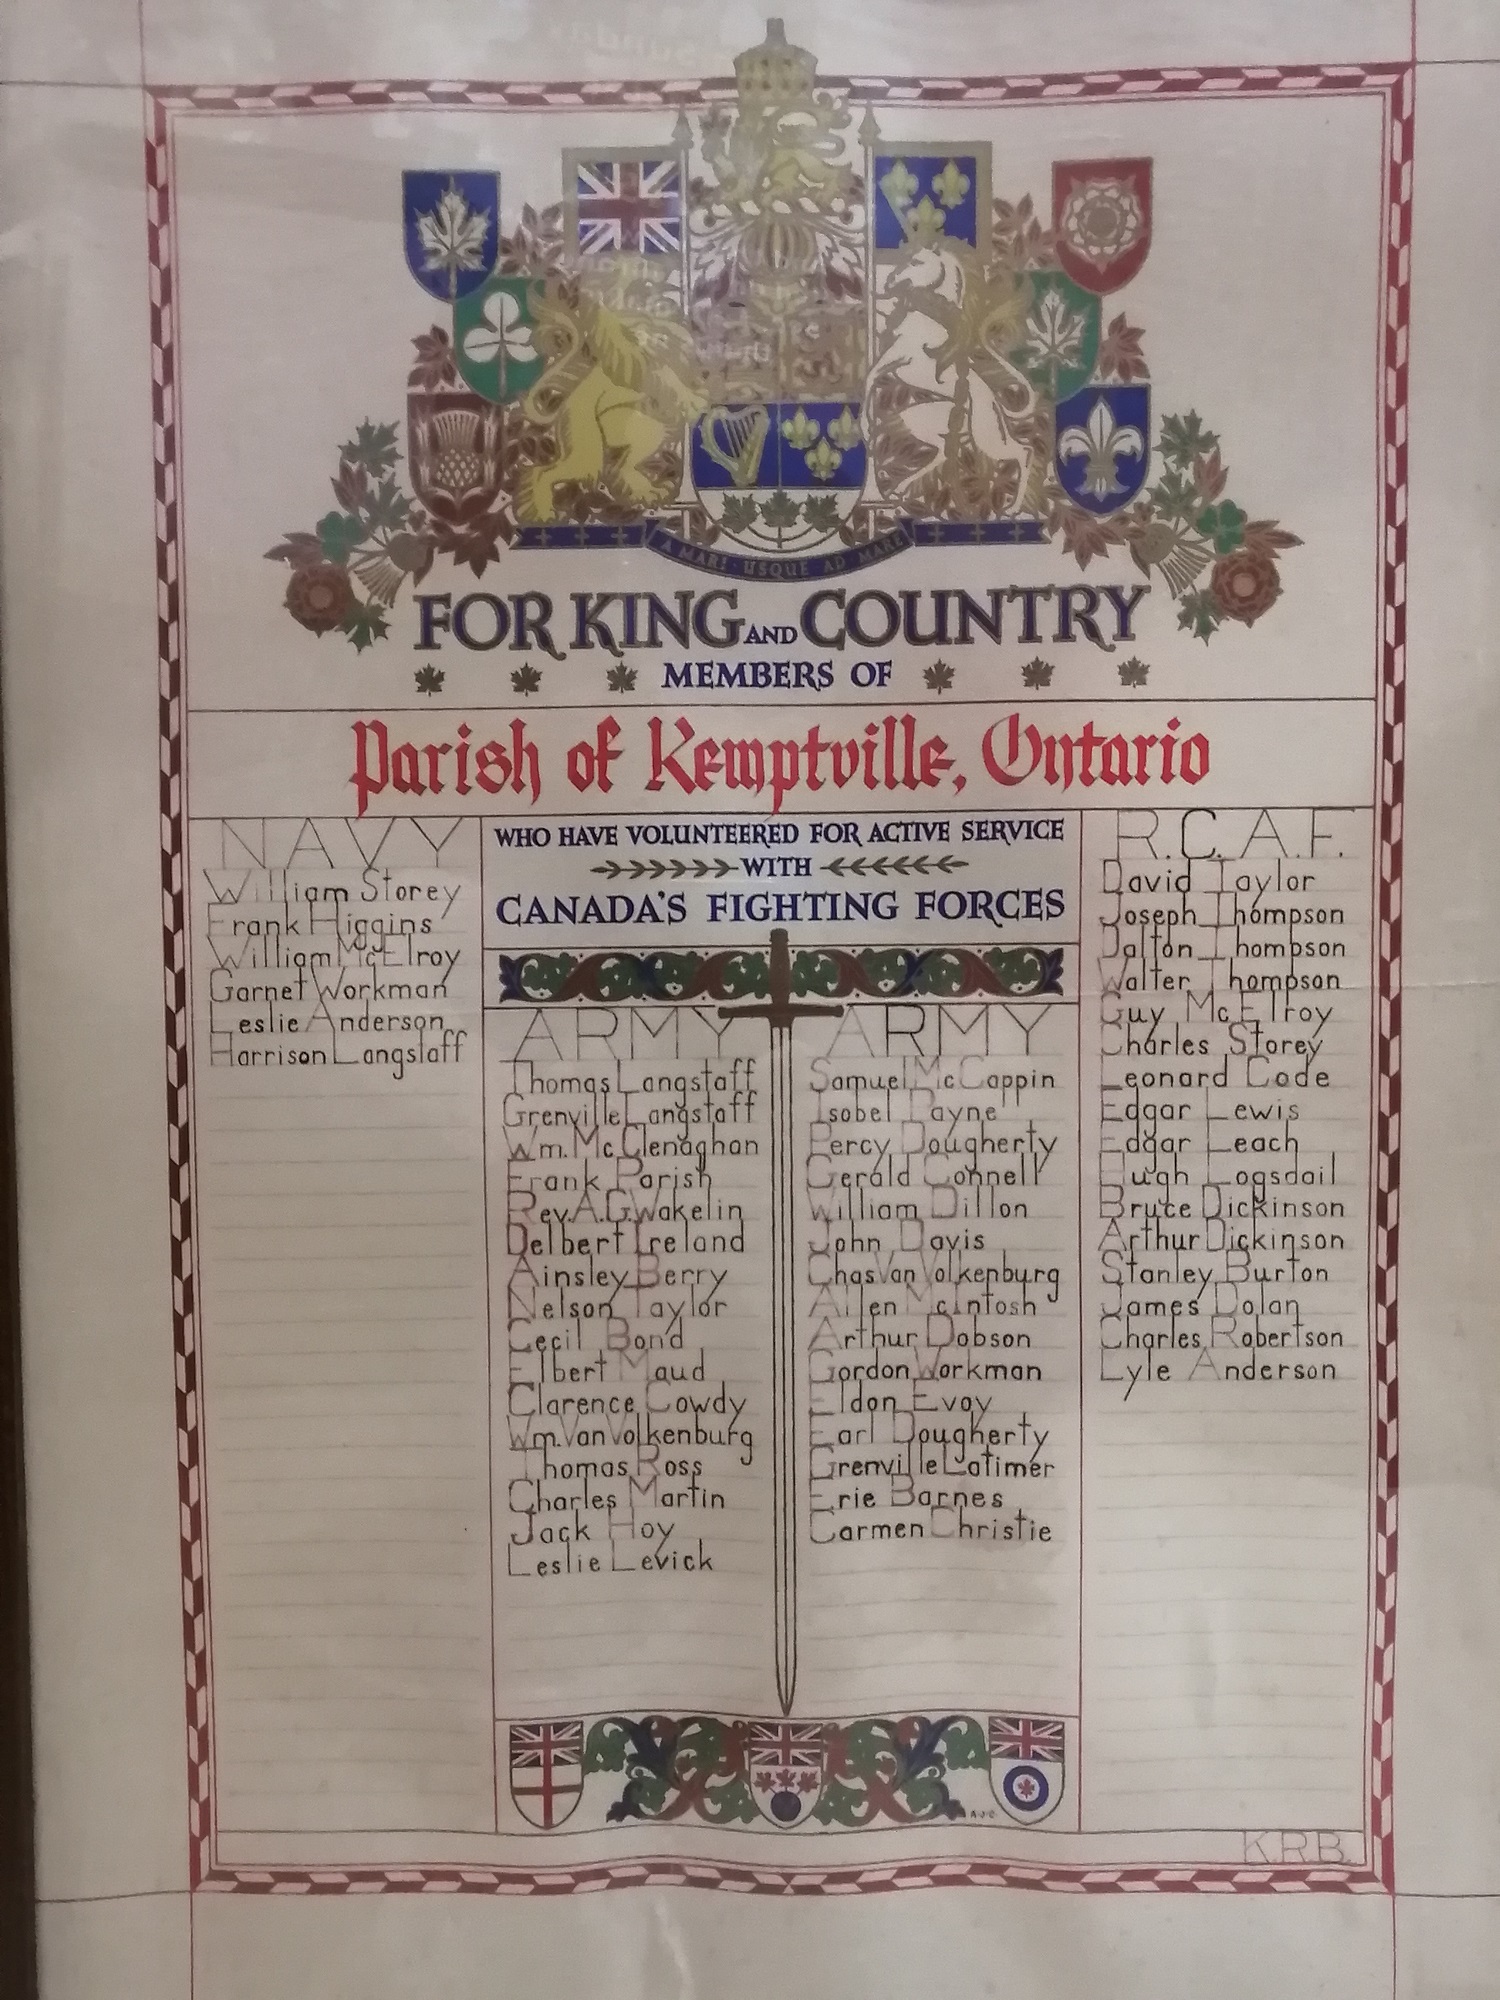 A MARI USQUE AD MARE
FOR KING AND COUNTRY
MEMBERS OF
Parish of Kemptville, Ontario
WHO HAVE VOLUNTEERED FOR ACTIVE SERVICE
WITH
CANADA'S FIGHTING FORCES
NAVY
William Storey
Frank Higgins
William McElroy
Garnet Workman
Leslie Anderson
Harrison Langstaff
ARMY
Thomas Langstaff
Grenville Langstaff
Wm. Mc.Clenaghan
Frank Parish
Rev. A.G. Wakelin
Delbert Ireland
Ainsley Berry
Nelson Taylor
Cecil Bond
Elbert Maud
Clarence Cowdy
Wm. Van Volkenburg
Thomas Ross
Charles Martin
Jack Hoy
Leslie Levick
ARMY
Samuel McCappin
Isobel Payne
Percy Dougherty
Gerald Connell
William Dillon
John Davis
Chas Van Volkenburg
Allen McIntosh
Arthur Dobson
Gordon Workman
Eldon Evoy
Earl Dougherty
Grenville Latimer
Erie Barnes
Carmen Christie
R.C.A.F.
David Taylor
Joseph Thompson
Dalton Thompson
Walter Thompson
Guy McElroy
Charles Storey
Leonard Code
Edgar Lewis
Edgar Leach
Hugh Logsdail
Bruce Dickinson
Arthur Dickinson
Stanley Burton
James Dolan
Charles Robertson
Lyle Anderson
K.R.B.